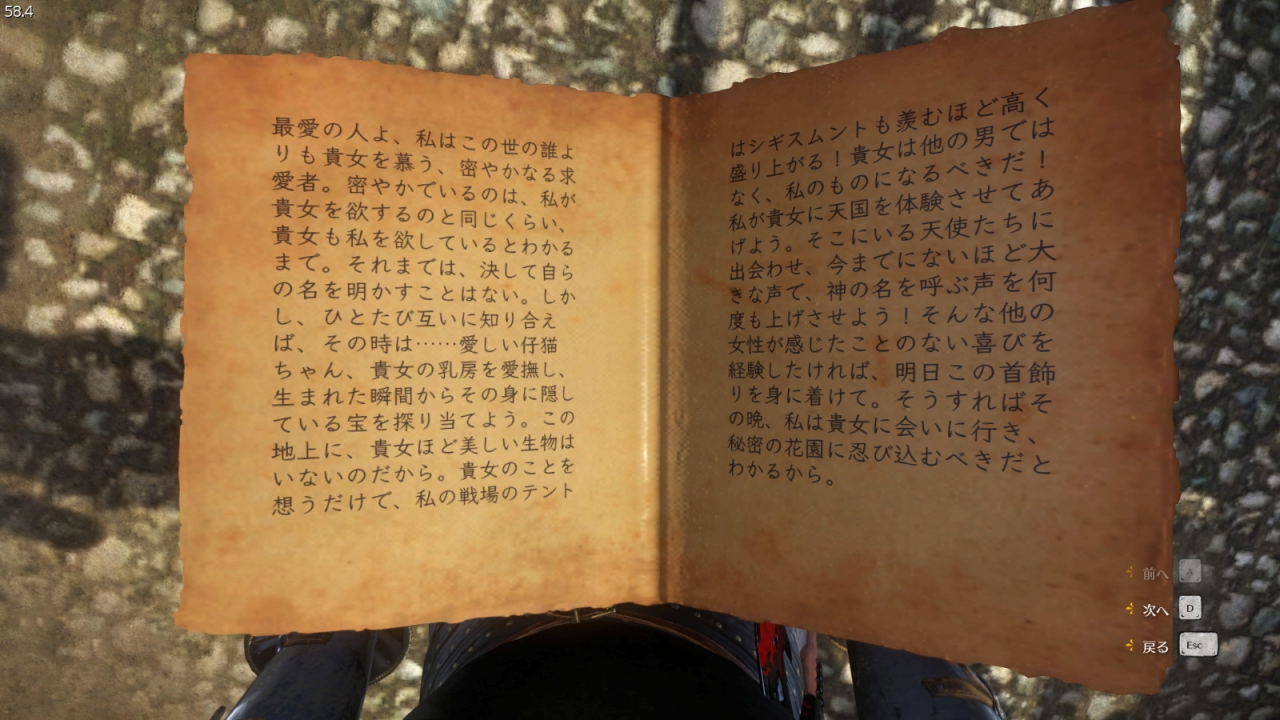 58.4
最愛の人よ、私はこの世の誰よ
りも貴女を慕う、密やかなる求
愛者。密やかでいるのは、私が
貴女を欲するのと同じくらい、
貴女も私を欲しているとわかる
まで。それまでは、決して自ら
の名を明かすことはない。しか
し、ひとたび互いに知り合え
ば、その時は……愛しい仔猫
ちゃん、貴女の乳房を愛撫し、
生まれた瞬間からその身に隠し
ている宝を探り当てよう。この
地上に、貴女ほど美しい生物は
いないのだから。貴女のことを
想うだけで、私の戦場のテント
はシギスムントも羨むほど高く
盛り上がる！貴女は他の男では
なく、私のものになるべきだ！
私が貴女に天国を体験させてあ
げよう。そこにいる天使たちに
出会わせ、今までにないほど大
きな声で、神の名を呼ぶ声を何
度も上げさせよう！そんな他の
女性が感じたことのない喜びを
経験したければ、明日この首飾
りを身に着けて。そうすればそ
の晩、私は貴女に会いに行き、
秘密の花園に忍び込むべきだと
わかるから。
前へ A
次へ D
戻る Esc